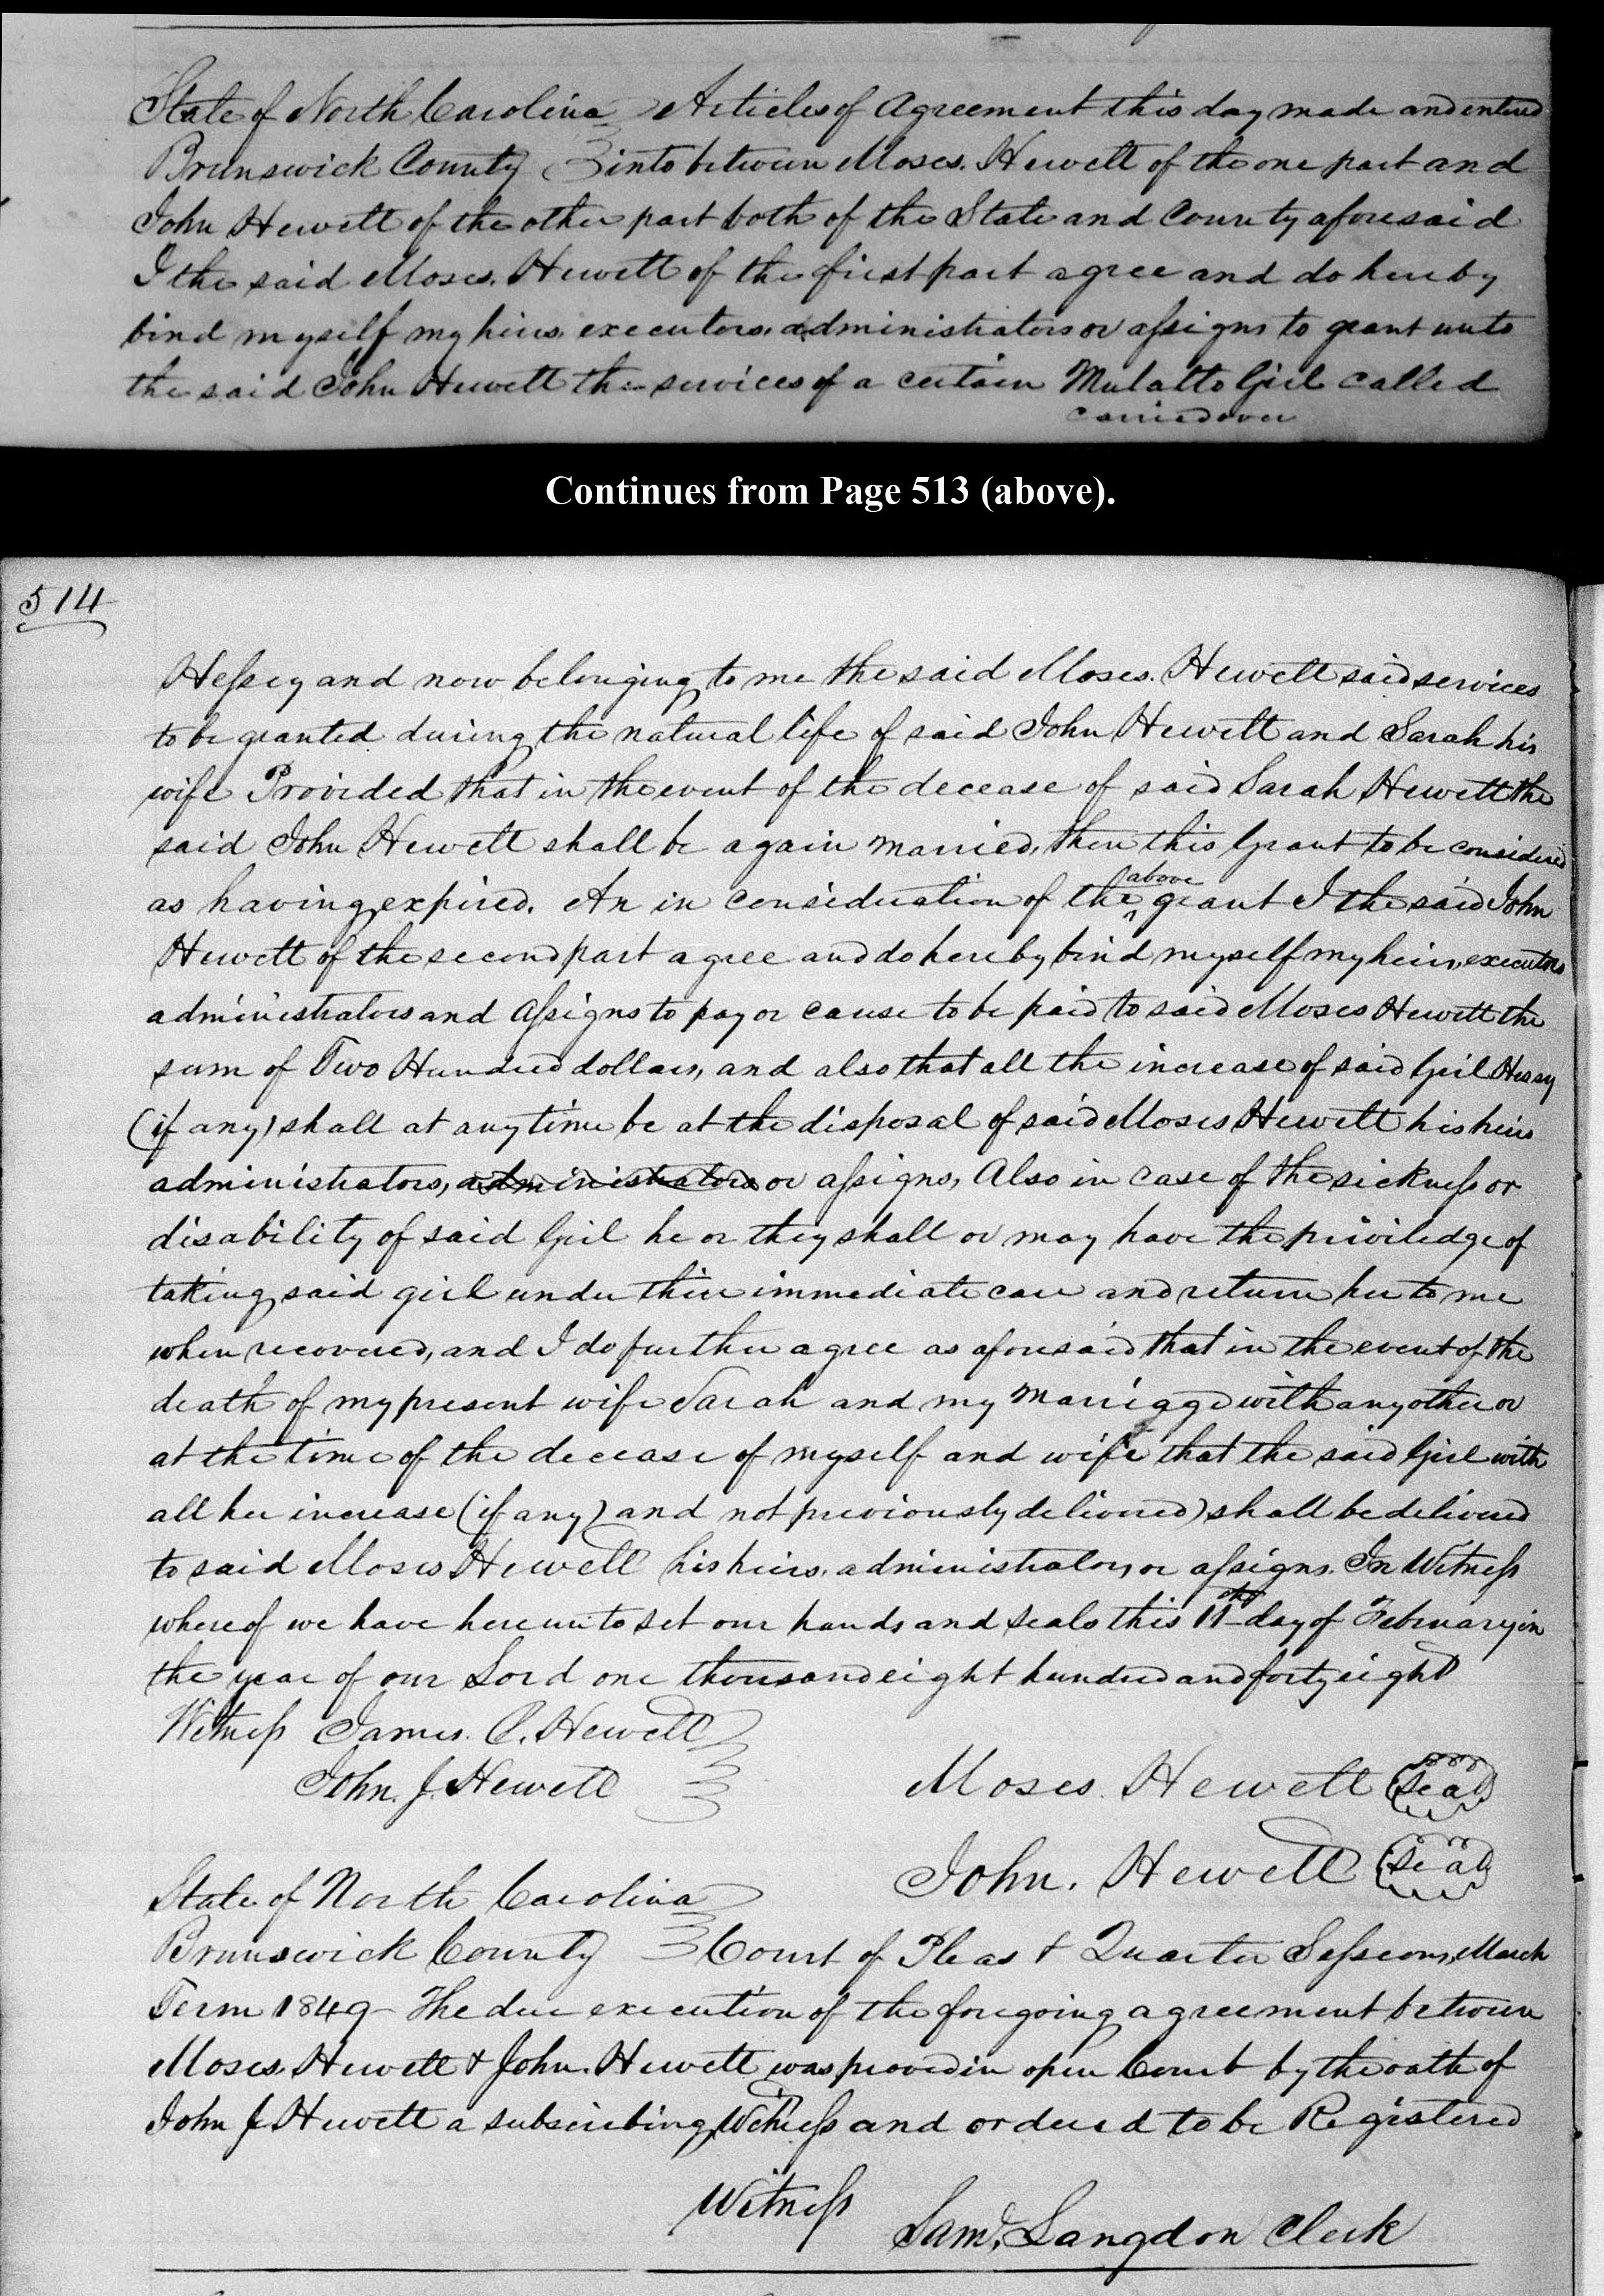 State of North Carolina Articles of Agreement this day made and entered
Brunswick County } into between Moses. Hewett of the one part and
John Hewett of the other part both of the State and County aforesaid
I the said Moses. Hewett of the first part agree and do hereby
bind myself my heirs, executors, administrators or assigns to grant unto
the said John Hewett the services of a certain Mulatto Girl called
carried over
Continues from Page 513 (above).
514
Hessey and now belonging to me the said Moses. Hewett said services
to be granted during the natural life of said John Hewett and Sarah his
wife Provided that in the event of the decease of said Sarah Hewett the
said John Hewett shall be again married, then this Grant to be considered
as having expired. An in consideration of the above grant I the said John
Hewett of the second part agree and do hereby bind myself my heirs, executors
administrators and assigns to pay or cause to be paid to said Moses Hewett the
sum of Two Hundred dollars, and also that all the increase of said Girl Hessy
(if any) shall at any time be at the disposal of said Moses Hewett his heirs
administrators, administrators or assigns, Also in case of the sickness or
disability of said Girl he or they shall or may have the priviledge of
taking said girl under their immediate care and return her to me
when recovered, and I do further agree as aforesaid that in the event of the
death of my present wife Sarah and my marriagge with any other or
at the time of the decease of myself and wife that the said Girl with
all her increase (if any) and not previously delivered) shall be delivered
to said Moses Hewett his heirs, administrators, or assigns. In Witness
whereof we have hereunto set our hands and seals this 11th day of February in
the year of our Lord one thousand eight hundred and forty eight
Witness James. C. Hewett }
John. J. Hewett
Moses. Hewett (Seal)
John. Hewett (Seal)
State of North Carolina
Brunswick County } Court of Pleas & Quarter Sessions, March
Term 1849 - The due execution of the foregoing agreement between
Moses. Hewett & John. Hewett was proved in open Court by the oath of
John J. Hewett a subscribing Witness and ordered to be Registered
Witness
Saml. Langdon Clerk